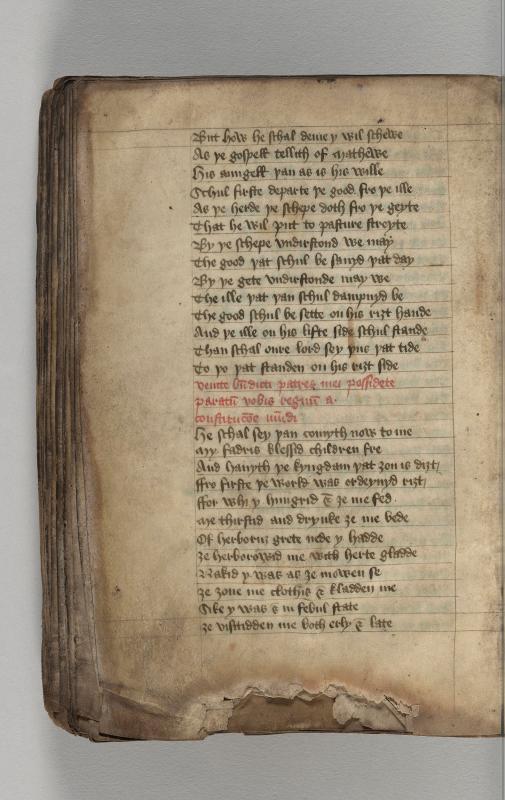 But how he schal deme y wil schewe
As þe gospell tellith of Mathewe
His aungell þan as is his wille
Schul firste departe þe good fro þe ille
As þe herde þe schepe doth fro þe geyte
That he wil put to pasture streyte
By þe schepe vndirstond we may
The good þat schul be sauyd þat day
By þe gete vndirstonde may we
The ille þat þan schul dampnyd be
The good schul be sette on his riȝt hande
And þe ille on his lifte side schul stande
Than schal oure lord sey þus þat tide
To þo þat standen on his riȝt side
venite bn̄dicti patris mei possidete
paratū vobis regnū a
constitucōe mūdi
He schal sey þan comyth now to me
My fadris blessid children fre
And hauyth þe kyngdam þat ȝou is diȝt
ffro firste þe world was ordeynyd riȝt
ffor whi y hungrid & ȝe me fed
Me thirstid and drynke ȝe me bede
Of herboruȝ grete nede y hadde
ȝe herborowid me with herte gladde
Nakid y was as ȝe mowen se
ȝe ȝoue me clothis & kladden me
Sike y was & in febul state
ȝe visitidden me both erly & late